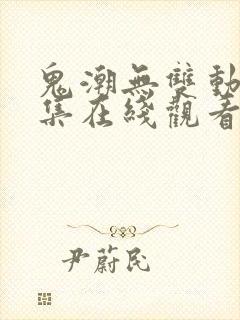 鬼潮無雙動
集在綫觀看
尹蔚民